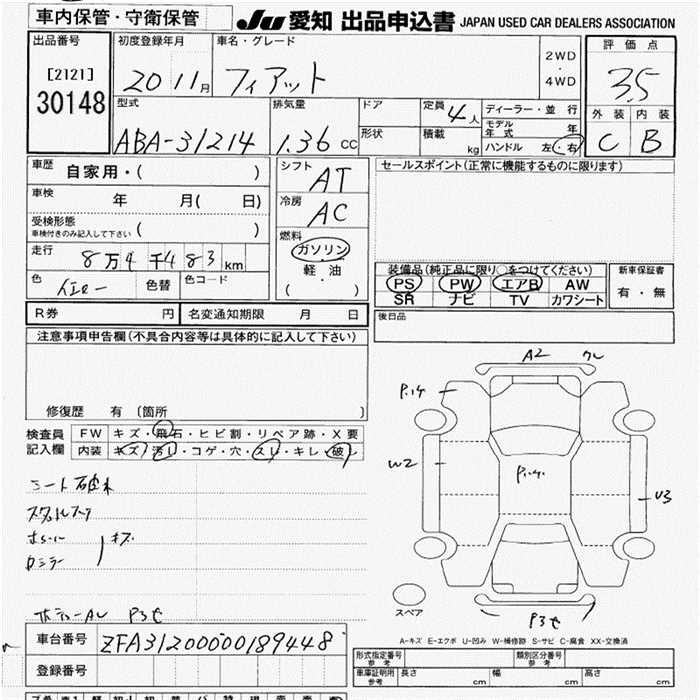 車内保管・守衛保管
JU 愛知 出品申込書 JAPAN USED CAR DEALERS ASSOCIATION
出品番号
[2121]
30148
初度登録年月
2011月
車名・グレード
フィアット
2WD
・
4WD
評価点
3.5
外装 内装
C B
型式
ABA-31214
排気量
1.36 CC
ドア
形状
定員 4人
積載 kg
ディーラー・並行
モデル年式 年
ハンドル 左・右
車歴 自家用・( )
車検 年 月( 日)
受検形態
車検付きのみ記入して下さい ( )
走行 8万4千483km
色 イエロー 色替 色コード
シフト AT
冷房 AC
燃料
ガソリン
軽・油
( ・ )
セールスポイント(正常に機能するものに限ります)
装備品(純正品に限り○をつけてください)
PS PW エアB AW
SR ナビ TV カワシート
新車保証書
有・無
R券 円 名変通知期限 月 日
後日品
注意事項申告欄(不具合内容等は具体的に記入して下さい)
修復歴 有〔箇所 〕
検査員
記入欄
FW キズ・飛石・ヒビ割・リペア跡・X要
内装 キズ・汚れ・コゲ・穴・スレ・キレ・破れ
シート破れ
キズ
P3セ
A2
P.14
W2
P.14.
U3
P3セ
スペア
A-キズ E-エクボ U-凹み W-補修跡 S-サビ C-腐食 XX-交換済
車台番号 ZFA31200000189448
登録番号
形式指定番号
参考
類別区分番号
参考
車庫証明用
参考
長さ cm 幅 cm 高さ cm